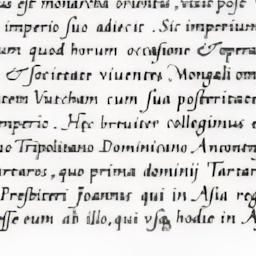 us est monarcha orientis, vixit post
imperio suo adiecit. Sic imperium
um quod horum occasione & opera
& societate viventes, Mongali om
tem Vutcham cum sua posteritate
mperio. Hęc breviter collegimus e
no Tripolitano Dominicano Antonin
artaros, quo prima dominij Tartar
Presbiteri Joannis qui in Asia reg
esse eum ab illo, qui usq hodie in A